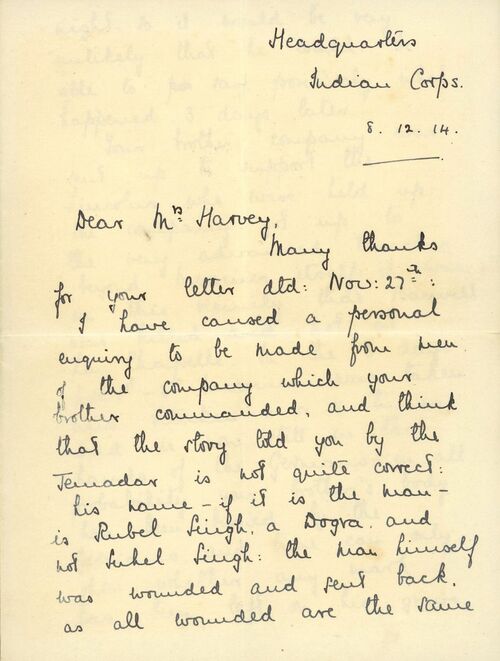 Headquarters
Indian Corps.
8. 12. 14.
Dear Mrs Harvey,
Many thanks
for your letter dtd: Nov: 27th:
I have caused a personal
enquiry to be made from men
of the company which your
brother commanded, and think
that the story told you by the
Jemadar is not quite correct:
his name – if it is the man –
is Rubel Singh, a Dogra, and
not Suhel Singh: the man himself
was wounded and sent back,
as all wounded are the same